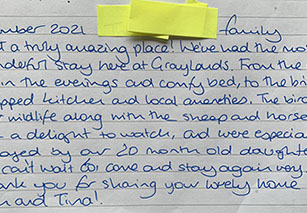 mber 2021 family
t a truly amazing place! We've had the mo
nderful stay here at Graylands. From the
in the evenings and comfy bed, to the bi
pped kitchen and local amenities. The bird
r wildlife along with the sheep and horse
t a delight to watch, and were especia
aged by our 20 month old daughte
can't wait to come and stay again very
ank you for sharing your lovely home
n and Tina!